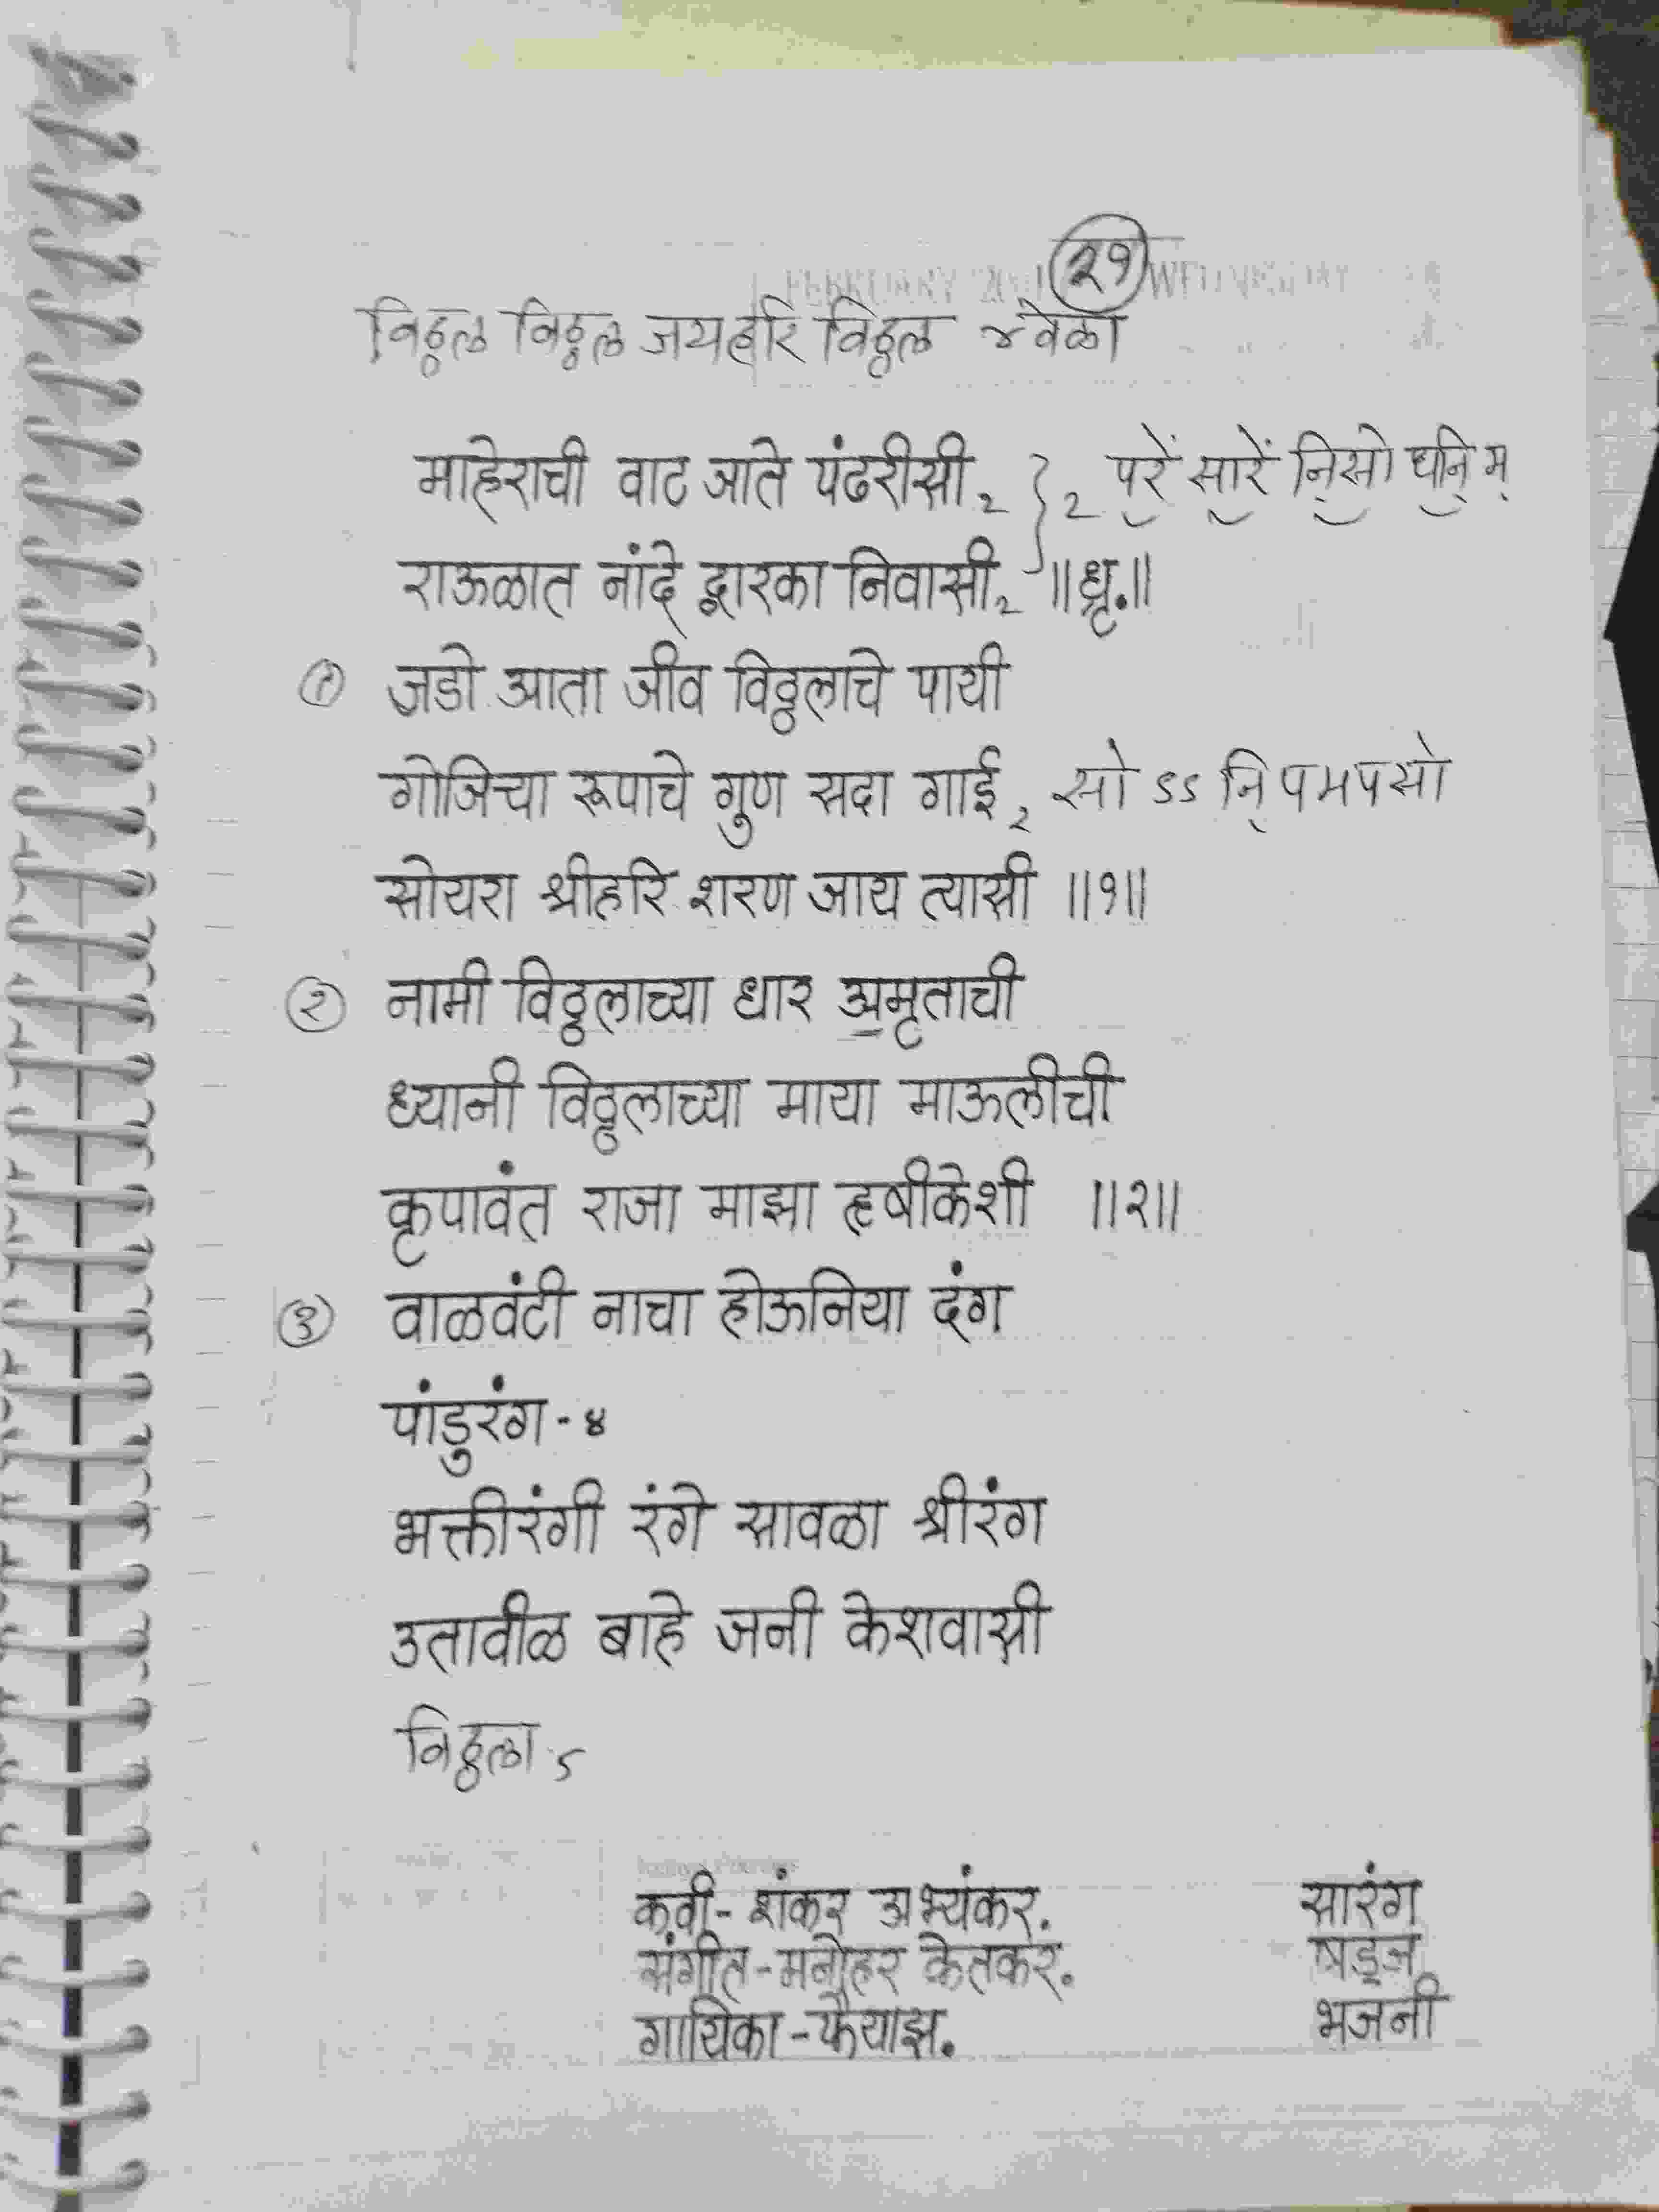 २१
विठ्ठल विठ्ठल जयहरि विठ्ठल ४ वेळा
माहेराची वाट जाते पंढरीसी २ } २ परें सारें नि॒सो धनि॒ म
राऊळात नांदे द्वारका निवासी २ ॥ध्रृ.॥
१ जडो आता जीव विठ्ठलाचे पायी
गोजिऱ्या रूपाचे गुण सदा गाई २ सो ऽऽ नि॒ प म प सो
सोयरा श्रीहरि शरण जाय त्यासी ॥१॥
२ नामी विठ्ठलाच्या धार अमृताची
ध्यानी विठ्ठलाच्या माया माऊलीची
कृपावंत राजा माझा हृषीकेशी ॥२॥
३ वाळवंटी नाचा होऊनिया दंग
पांडुरंग - ४
भक्तीरंगी रंगे सावळा श्रीरंग
उतावीळ बाहे जनी केशवासी
विठ्ठला ऽ
कवी - शंकर अभ्यंकर. सारंग
संगीत - मनोहर केतकर. षड्ज
गायिका - फैयाझ. भजनी